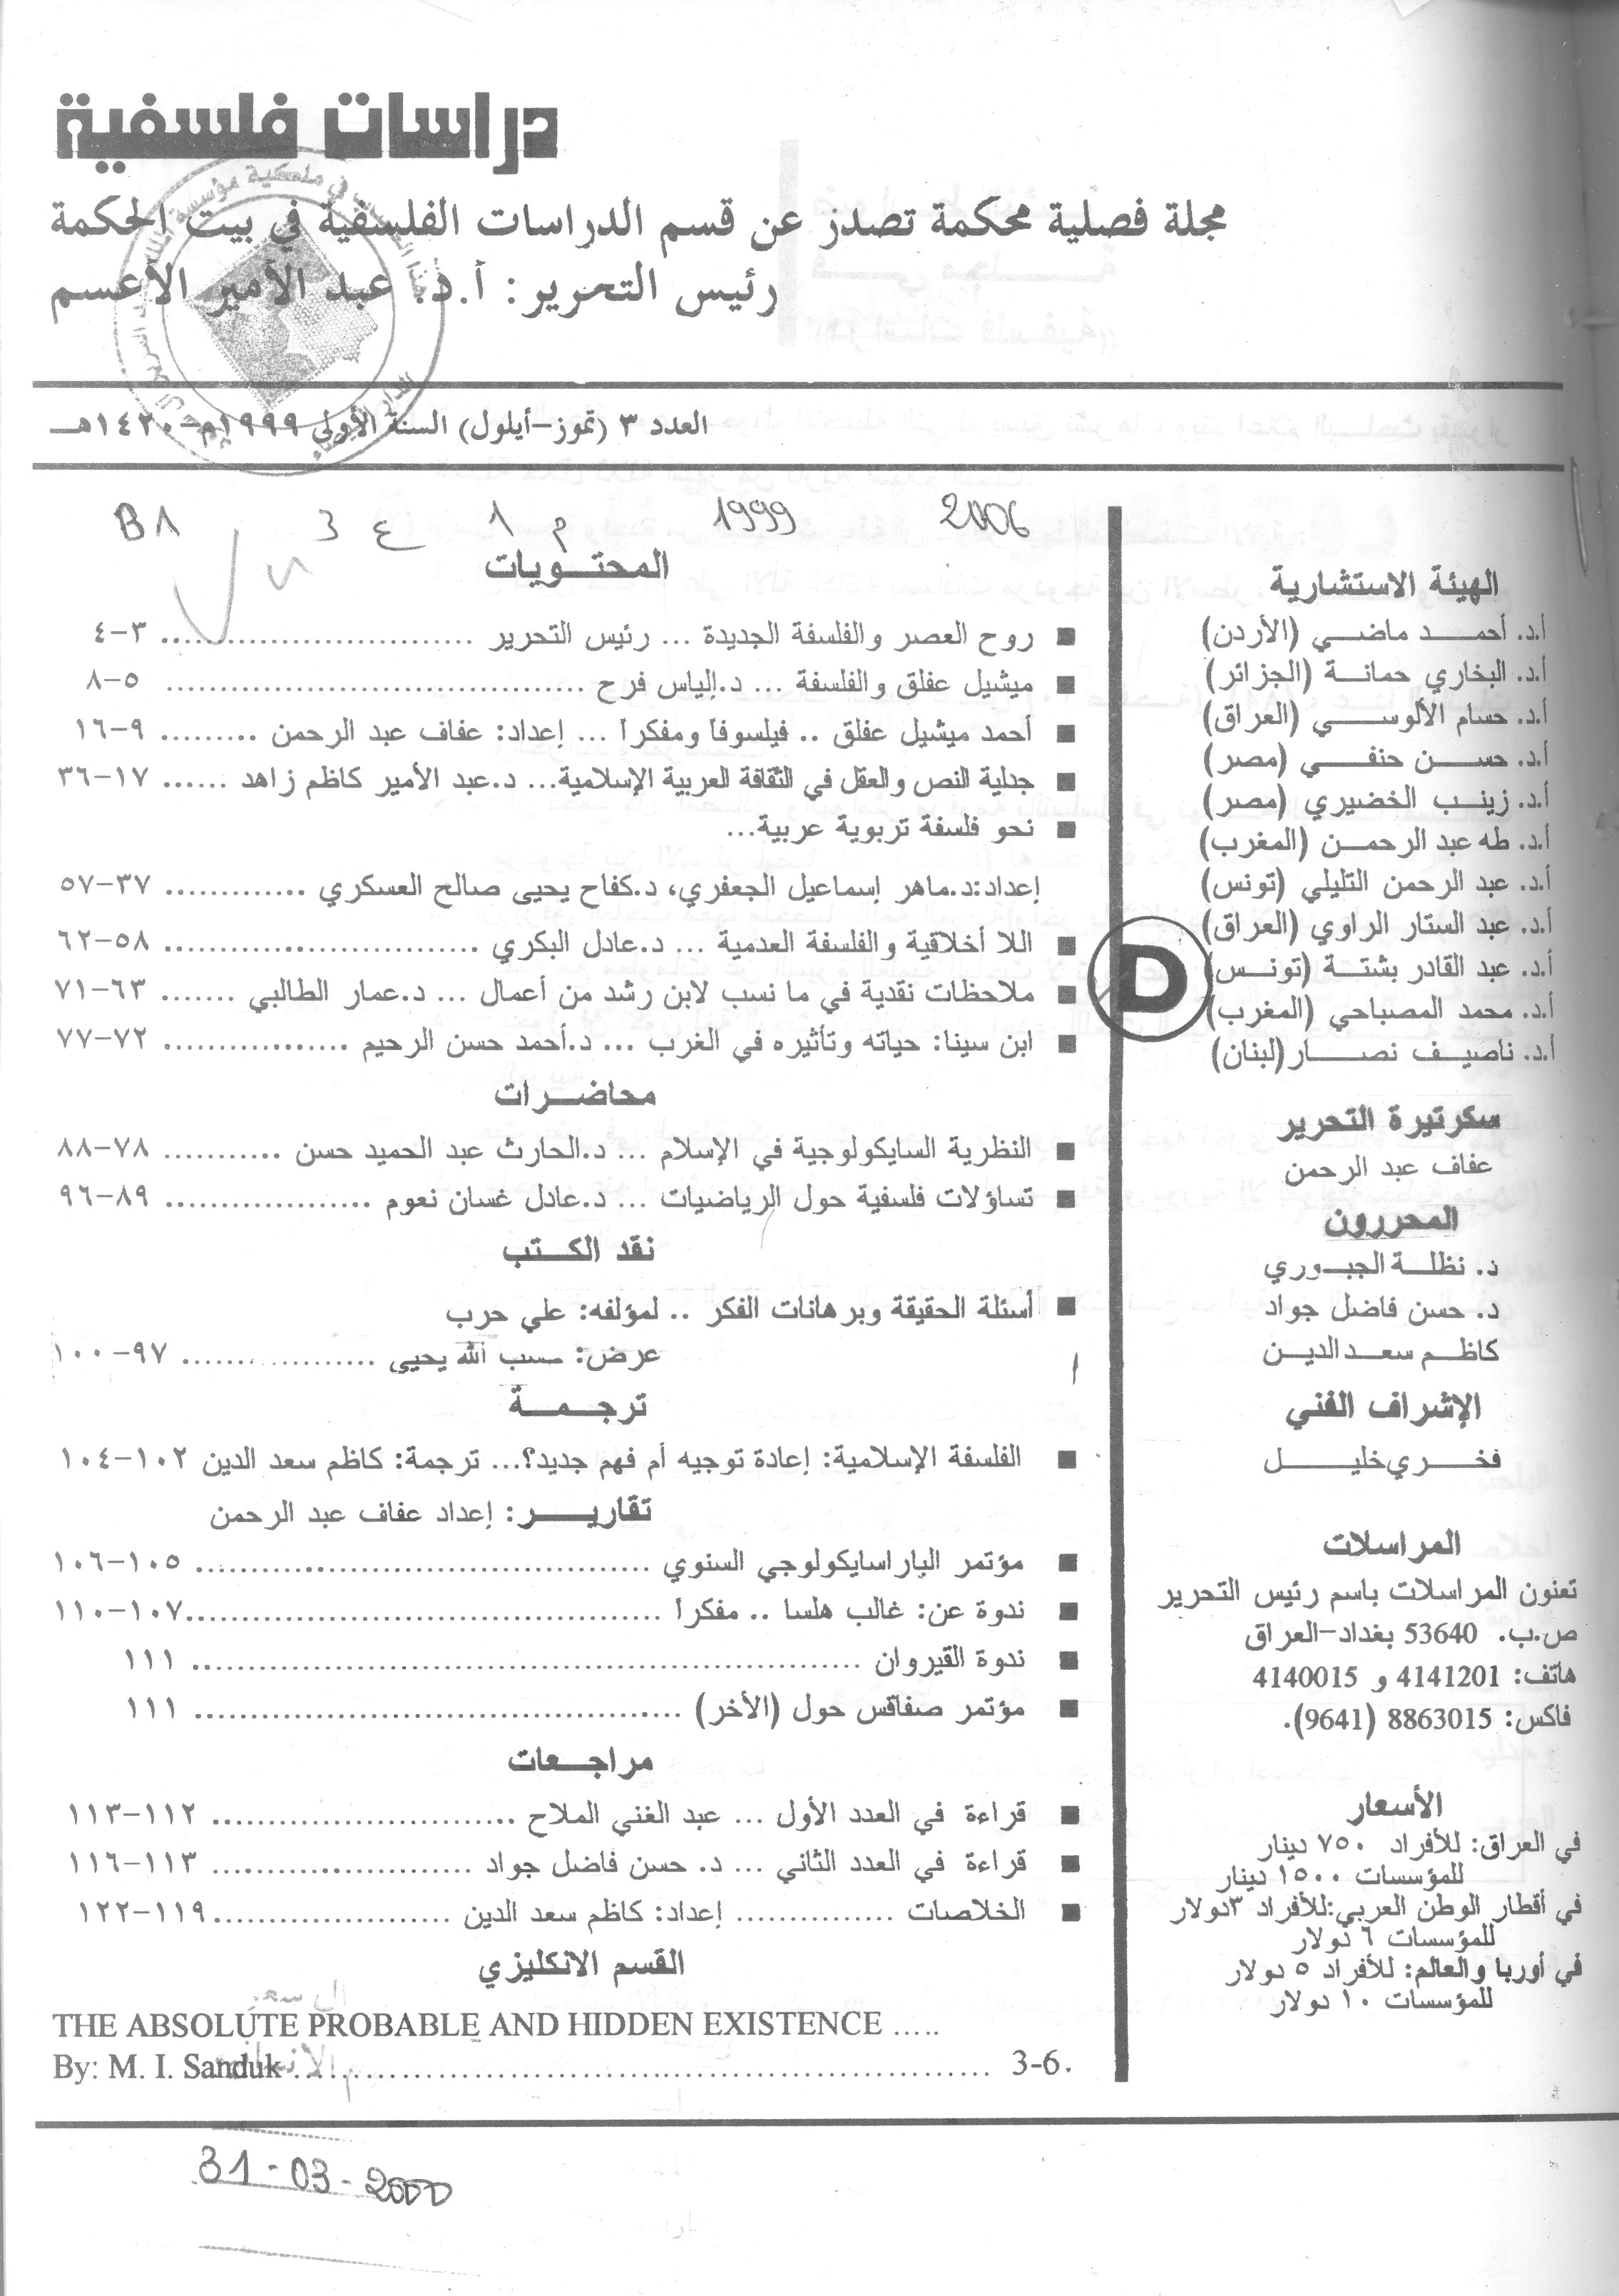 دراسات فلسفية
مجلة فصلية محكمة تصدر عن قسم الدراسات الفلسفية في بيت الحكمة
رئيس التحرير: أ.د. عبد الأمير الأعسم
العدد ٣ (تموز-أيلول) السنة الأولى ١٩٩٩م-١٤٢٠هـ
B1 3 ع 1 م 1999 2006
الهيئة الاستشارية
أ.د. أحمد ماضي (الأردن)
أ.د. البخاري حمانة (الجزائر)
أ.د. حسام الألوسي (العراق)
أ.د. حسن حنفي (مصر)
أ.د. زينب الخضيري (مصر)
أ.د. طه عبد الرحمن (المغرب)
أ.د. عبد الرحمن التليلي (تونس)
أ.د. عبد الستار الراوي (العراق)
أ.د. عبد القادر بشتة (تونس)
أ.د. محمد المصباحي (المغرب)
أ.د. ناصيف نصار (لبنان)
سكرتيرة التحرير
عفاف عبد الرحمن
المحررون
د. نظلة الجبوري
د. حسن فاضل جواد
كاظم سعد الدين
الإشراف الفني
فخري خليل
المراسلات
تعنون المراسلات باسم رئيس التحرير
ص.ب. 53640 بغداد-العراق
هاتف: 4141201 و 4140015
فاكس: 8863015 (9641).
الأسعار
في العراق: للأفراد ٧٥٠ دينار
للمؤسسات ١٥٠٠ دينار
في أقطار الوطن العربي: للأفراد ٣ دولار
للمؤسسات ٦ دولار
في أوربا والعالم: للأفراد ٥ دولار
للمؤسسات ١٠ دولار
D
المحتويات
■ روح العصر والفلسفة الجديدة ... رئيس التحرير ............................ ٣-٤
■ ميشيل عفلق والفلسفة ... د.الياس فرح ................................... ٥-٨
■ أحمد ميشيل عفلق .. فيلسوفاً ومفكراً ... اعداد: عفاف عبد الرحمن ......... ٩-١٦
■ جدلية النص والعقل في الثقافة العربية الإسلامية... د.عبد الأمير كاظم زاهد ...... ١٧-٣٦
■ نحو فلسفة تربوية عربية...
إعداد:د.ماهر إسماعيل الجعفري، د.كفاح يحيى صالح العسكري ............ ٣٧-٥٧
■ اللا أخلاقية والفلسفة العدمية ... د.عادل البكري ........................... ٥٨-٦٢
■ ملاحظات نقدية في ما نسب لابن رشد من أعمال ... د.عمار الطالبي ....... ٦٣-٧١
■ ابن سينا: حياته وتأثيره في الغرب ... د.أحمد حسن الرحيم ................ ٧٢-٧٧
محاضرات
■ النظرية السايكولوجية في الإسلام ... د.الحارث عبد الحميد حسن .......... ٧٨-٨٨
■ تساؤلات فلسفية حول الرياضيات ... د.عادل غسان نعوم .................. ٨٩-٩٦
نقد الكتب
■ أسئلة الحقيقة وبرهانات الفكر .. لمؤلفه: علي حرب
عرض: حسب الله يحيى ................ ٩٧-١٠٠
ترجمة
■ الفلسفة الإسلامية: إعادة توجيه أم فهم جديد؟... ترجمة: كاظم سعد الدين ١٠٢-١٠٤
تقارير: إعداد عفاف عبد الرحمن
■ مؤتمر الباراسايكولوجي السنوي ....................................... ١٠٥-١٠٦
■ ندوة عن: غالب هلسا .. مفكراً ........................................ ١٠٧-١١٠
■ ندوة القيروان ......................................................... ١١١
■ مؤتمر صفاقس حول (الأخر) ......................................... ١١١
مراجعات
■ قراءة في العدد الأول ... عبد الغني الملاح .......................... ١١٢-١١٣
■ قراءة في العدد الثاني ... د. حسن فاضل جواد ...................... ١١٣-١١٦
■ الخلاصات .............. إعداد: كاظم سعد الدين ....................١١٩-١٢٢
القسم الانكليزي
THE ABSOLUTE PROBABLE AND HIDDEN EXISTENCE .....
By: M. I. Sanduk ............................................................ 3-6.
31-03-2000